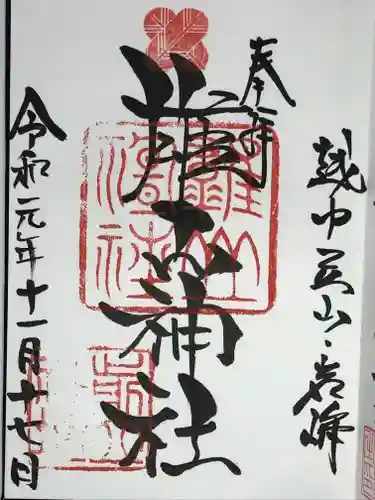 越中立山・岩峅
奉拝
雄山神社
雄山
神社
令和元年十一月十七日